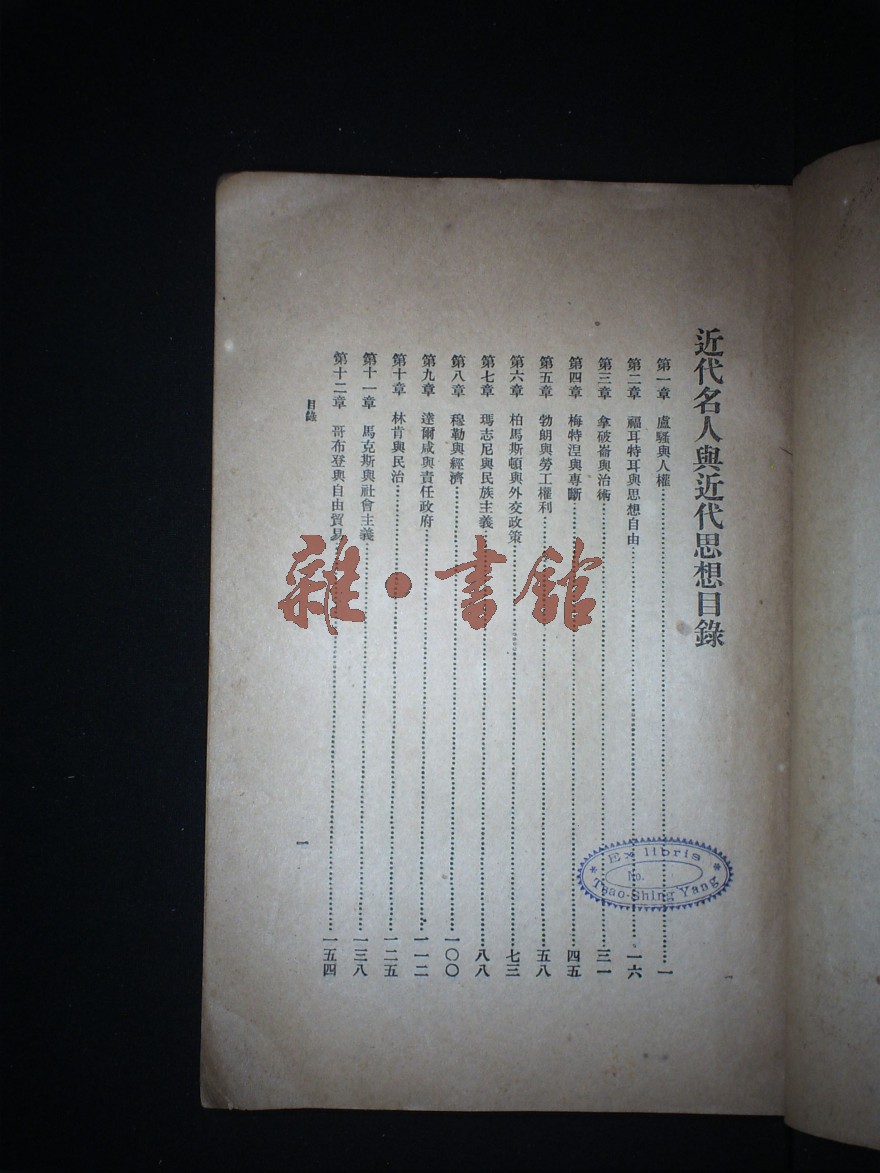 近代名人與近代思想目錄
第一章 盧騷與人權 一
第二章 福耳特耳與思想自由 一六
第三章 拿破崙與治術 三一
第四章 梅特涅與專斷 四五
第五章 勃朗與勞工權利 五八
第六章 柏馬斯頓與外交政策 七三
第七章 瑪志尼與民族主義 八八
第八章 穆勒與經濟 一〇〇
第九章 達爾咸與責任政府 一一二
第十章 林肯與民治 一二五
第十一章 馬克斯與社會主義 一三八
第十二章 哥布登與自由貿易 一五四
目錄
一
雜·書館
Ex libris
No.
Tsao-Shing Yang